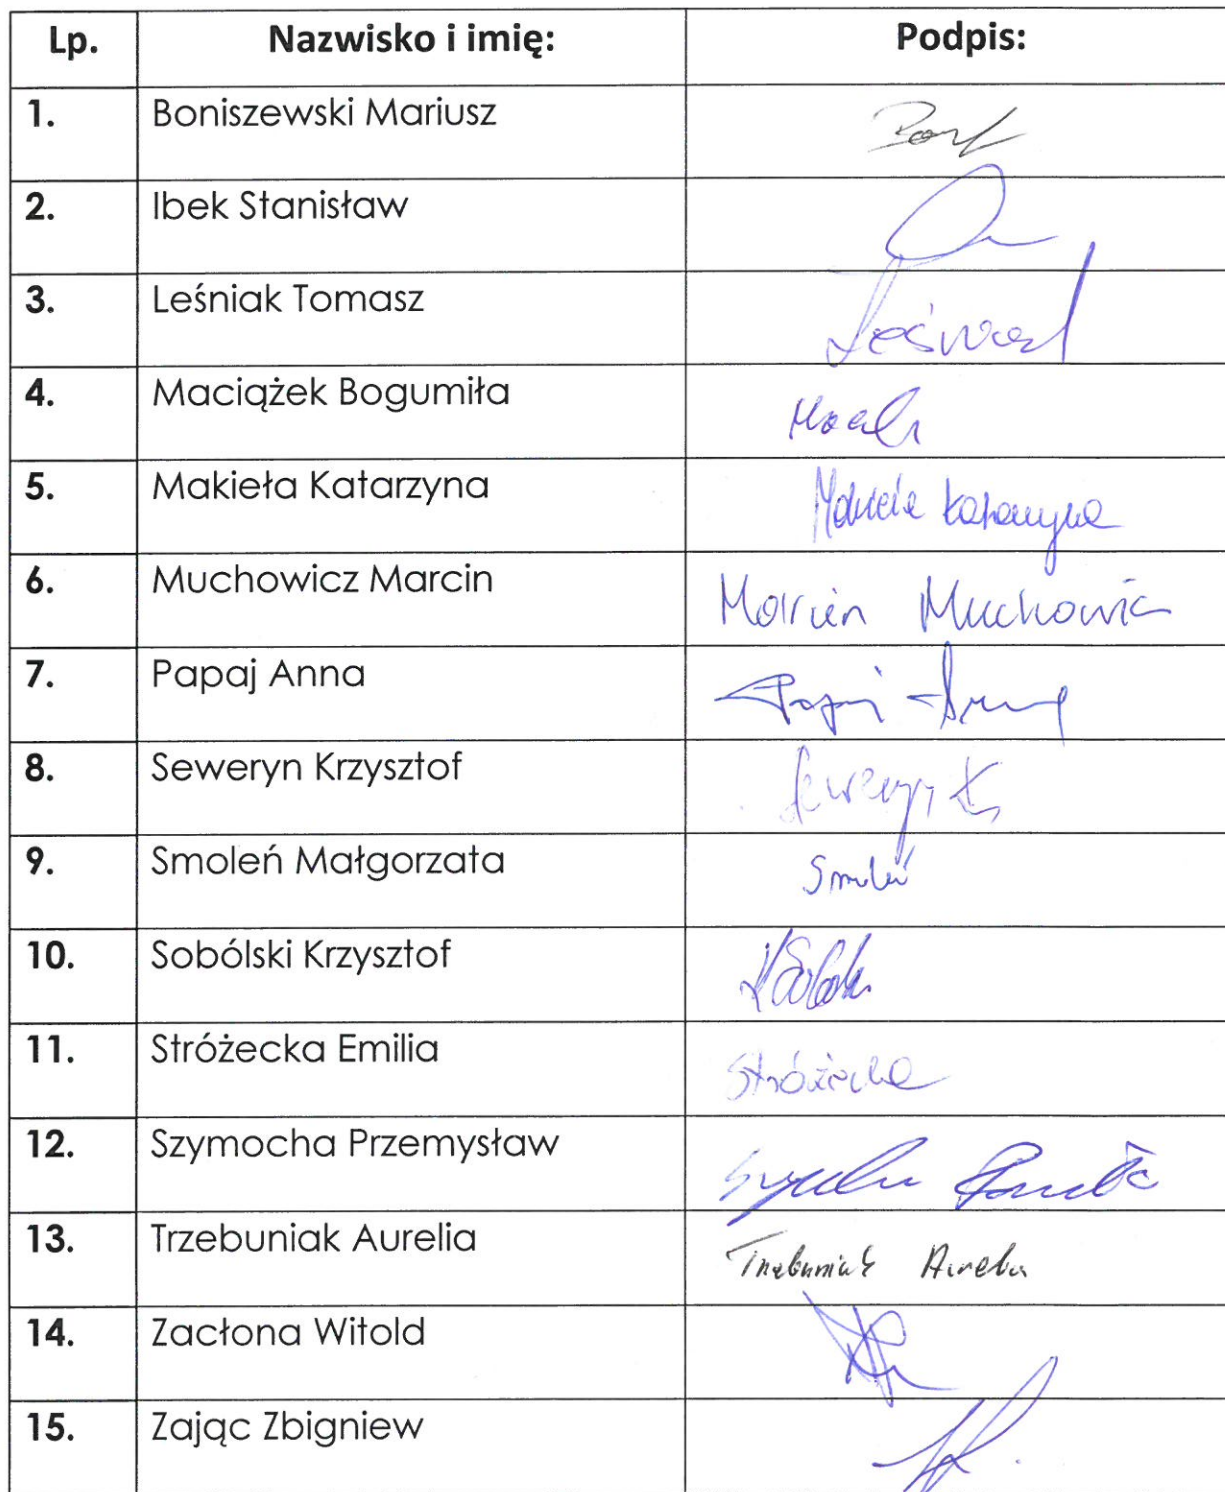 Lp. Nazwisko i imię: Podpis:
1. Boniszewski Mariusz
2. Ibek Stanisław
3. Leśniak Tomasz
4. Maciążek Bogumiła
5. Makieła Katarzyna
6. Muchowicz Marcin Marcin Muchowicz
7. Papaj Anna
8. Seweryn Krzysztof Seweryn K
9. Smoleń Małgorzata Smoleń
10. Sobólski Krzysztof
11. Stróżecka Emilia Stróżecka
12. Szymocha Przemysław
13. Trzebuniak Aurelia Trzebuniak Aurelia
14. Zacłona Witold
15. Zając Zbigniew